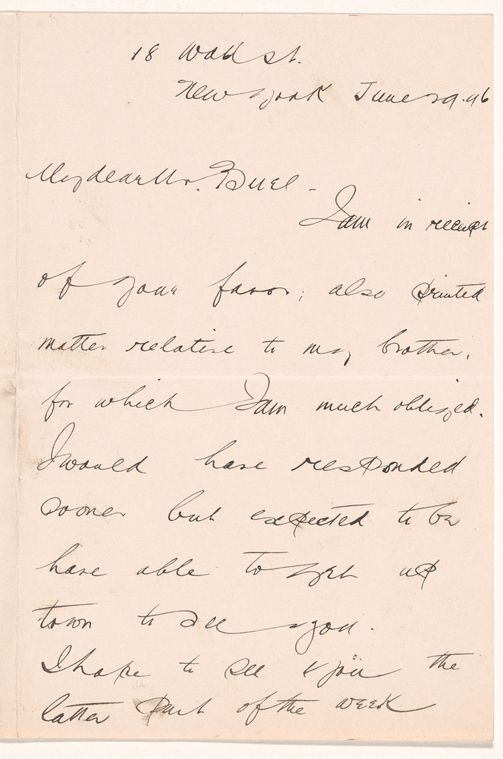 18 Wall St.
New York June 29. 96
My dear Mr. Buel -
I am in receipt
of your favor; also printed
matter relative to my brother,
for which I am much obliged.
I would have responded
sooner but expected to be
have able to get up
town to see you.
I hope to see you the
latter part of the week